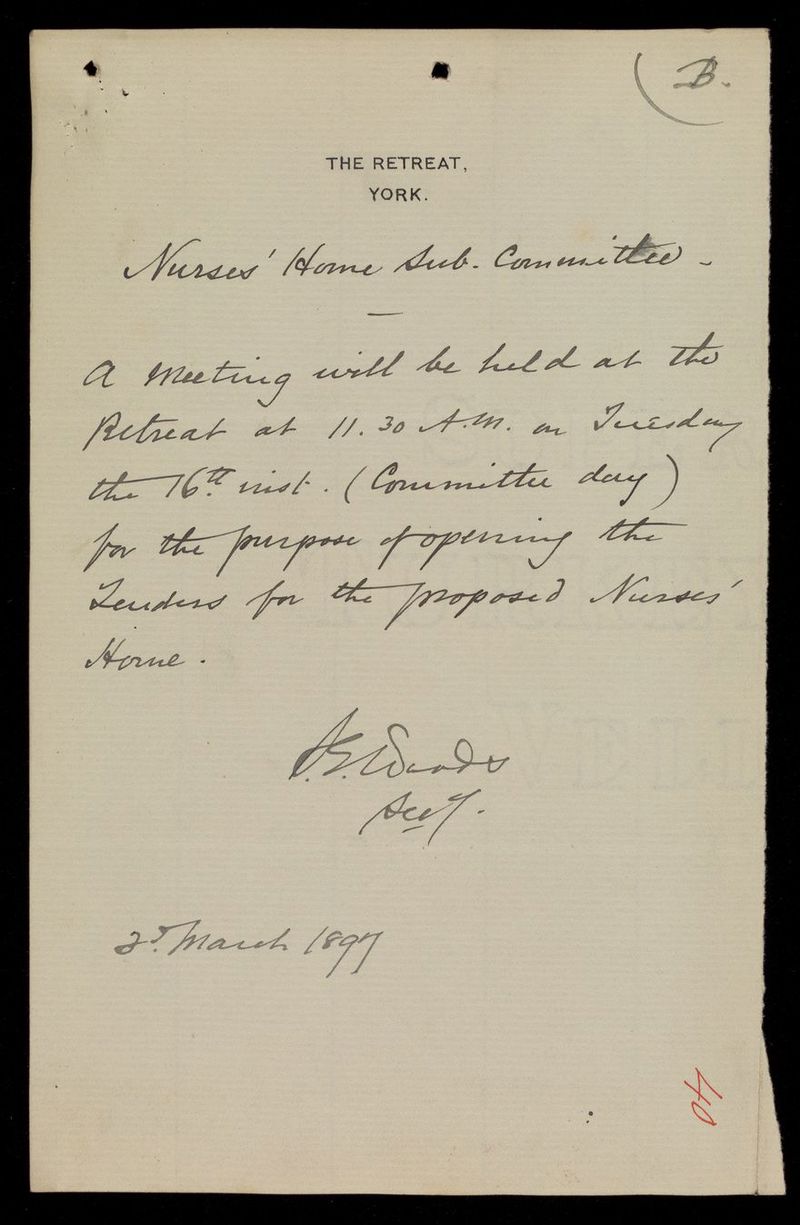 B.
THE RETREAT,
YORK.
Nurses' Home Sub-Committee -
A Meeting will be held at the
Retreat at 11.30 A.M. on Tuesday
the 16th inst. (Committee day)
for the purpose of opening the
Tenders for the proposed Nurses'
Home.
Woods
Secy.
March 1897
40